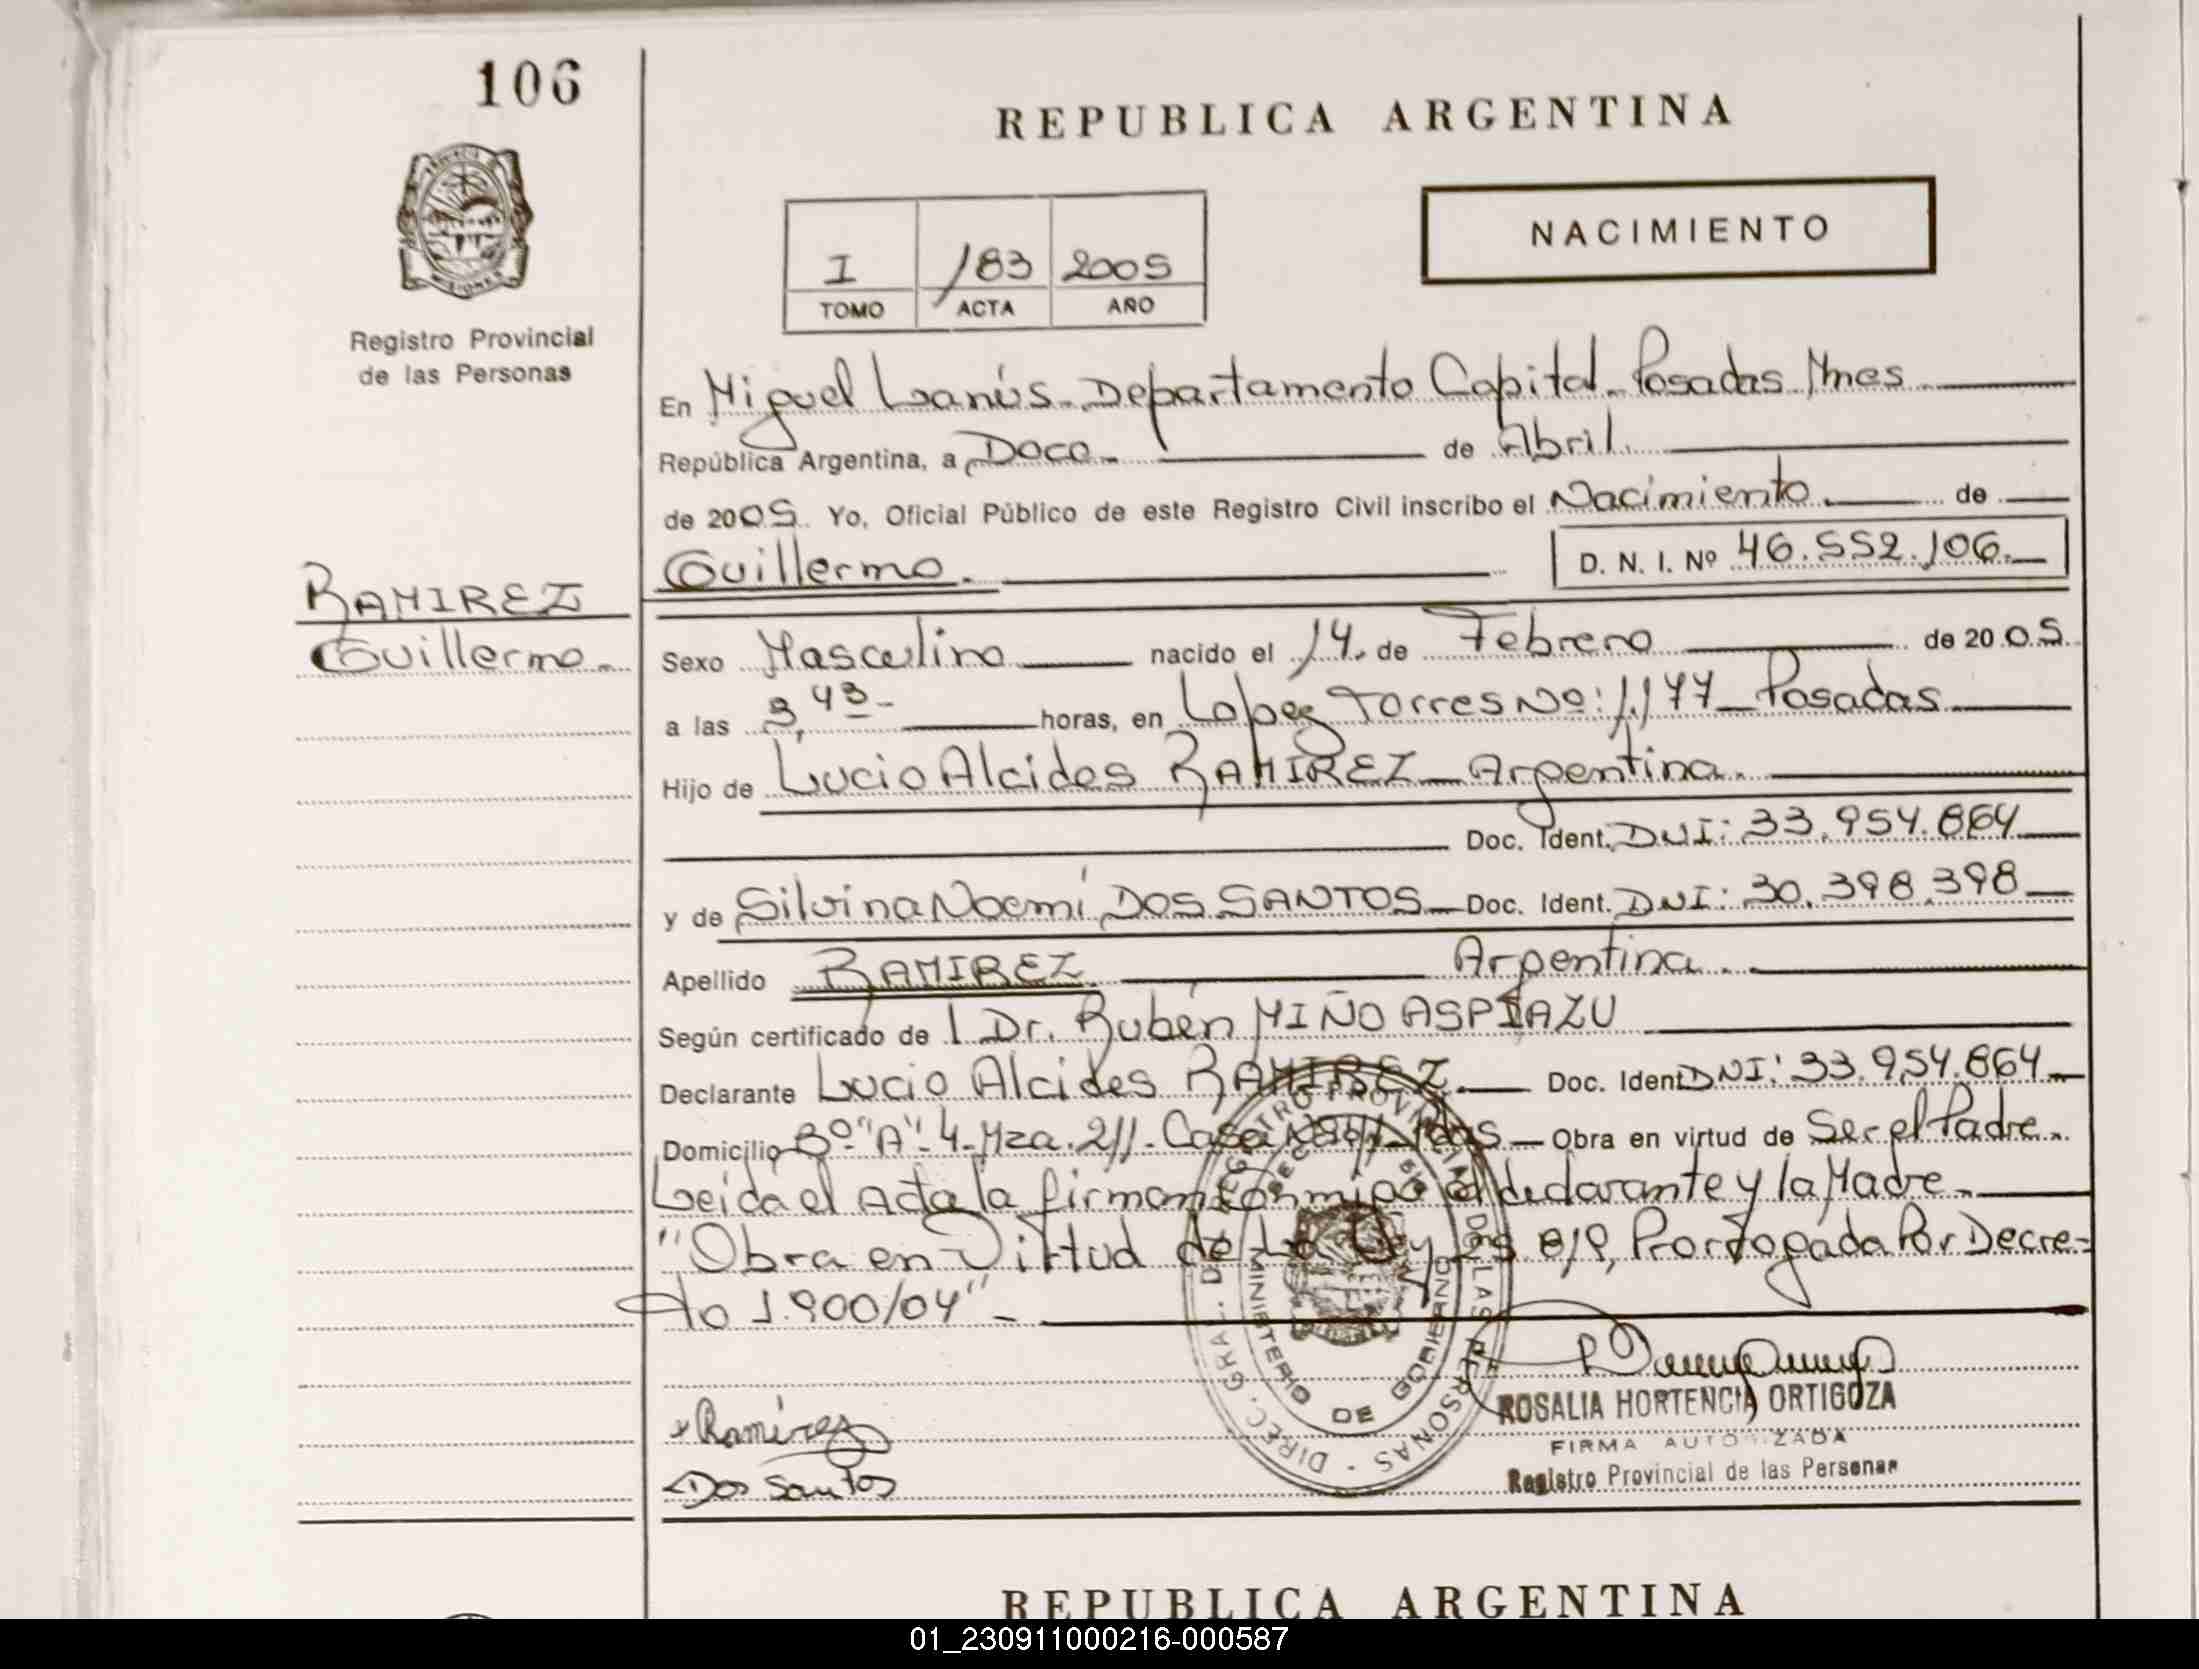 106
REPUBLICA ARGENTINA
NACIMIENTO
I 183 2005
TOMO ACTA AÑO
PROVINCIA DE
MISIONES
Registro Provincial
de las Personas
En Miguel Lanús - Departamento Capital - Posadas Mnes
República Argentina, a Doce - de Abril.
de 2005. Yo, Oficial Público de este Registro Civil inscribo el Nacimiento. de
Guillermo. D. N. I. Nº 46.552.106.
RAMIREZ
Guillermo
Sexo Masculino nacido el 14. de Febrero de 2005.
a las 3,43- horas, en Lopez Torres Nº: 1.177 - Posadas
Hijo de Lucio Alcides RAMIREZ - Argentina.
Doc. Ident. DNI: 33.954.864
y de Silvina Noemí DOS SANTOS - Doc. Ident. DNI: 30.398.398
Apellido RAMIREZ Argentina.
Según certificado de l Dr. Rubén MIÑO ASPIAZU
Declarante Lucio Alcides RAMIREZ. Doc. Ident DNI: 33.954.864
Domicilio Bº "A"-4-Mza. 211. Casa - Pdas - Obra en virtud de Ser el Padre.
Leída el Acta la firman conmigo el declarante y la Madre.
"Obra en Virtud de La Ley 25 819, Prorrogada Por Decre-
to 1.900/04" -
DIREC. GRAL. DEL REGISTRO PROVINCIAL DE LAS PERSONAS
MINISTERIO DE GOBIERNO
ROSALIA HORTENCIA ORTIGOZA
FIRMA AUTORIZADA
Registro Provincial de las Personas
x Ramirez
Dos Santos
REPUBLICA ARGENTINA
01_230911000216-000587